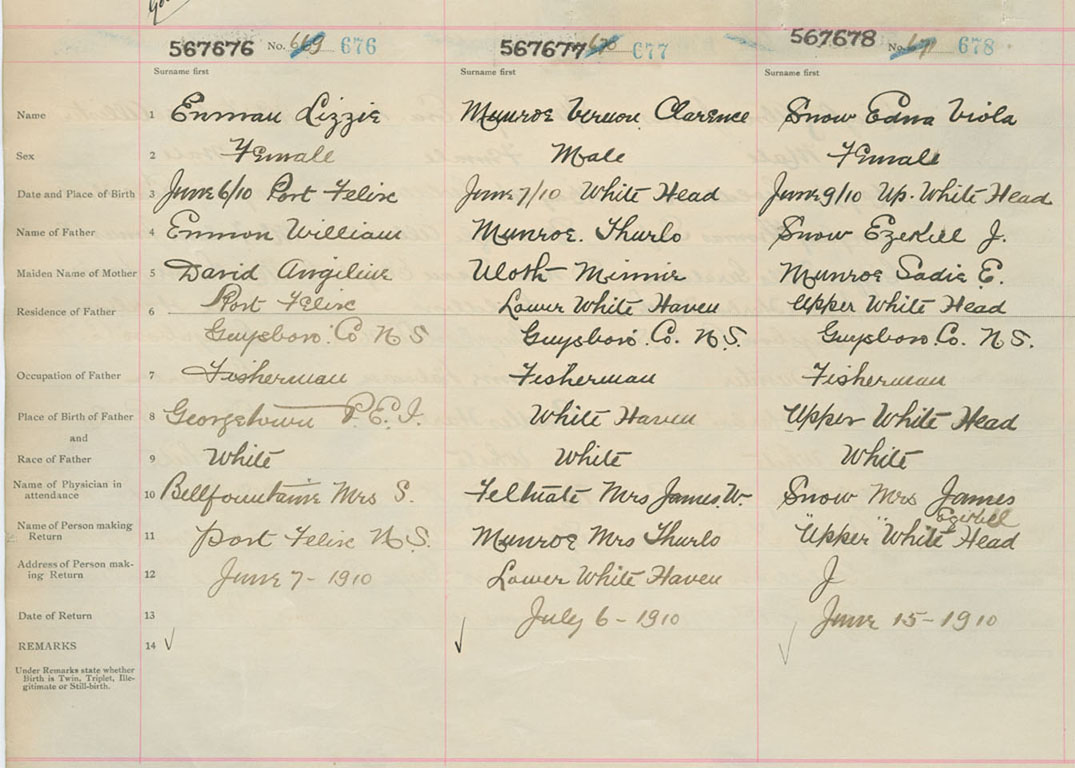 567676 No. 669 676
567677 670 677
567678 No. 671 678
Surname first Surname first Surname first
Name 1 Enman Lizzie Munroe Vernon Clarence Snow Edna Viola
Sex 2 Female Male Female
Date and Place of Birth 3 June 6/10 Port Felix June 7/10 White Head June 9/10 Up. White Head
Name of Father 4 Enmon William Munroe. Thurlo Snow Ezekill J.
Maiden Name of Mother 5 David Angiline Uloth Minnie Munroe Sadie E.
Residence of Father 6 Port Felix Lower White Haven Upper White Head
Guysboro. Co. N S Guysboro. Co. N.S. Guysboro. Co. N S.
Occupation of Father 7 Fisherman Fisherman Fisherman
Place of Birth of Father 8 Georgetown P.E.I. White Haven Upper White Head
and
Race of Father 9 White White White
Name of Physician in
attendance 10 Bellfountaine Mrs S. Feltmate Mrs James W. Snow Mrs James
Ezekill
Name of Person making
Return 11 Port Felix N.S. Munroe Mrs Thurlo " Upper " White Head
Address of Person mak-
ing Return 12 June 7 - 1910 Lower White Haven J
Date of Return 13 July 6 - 1910 June 15 - 1910
REMARKS 14 ✓ ✓ ✓
Under Remarks state whether
Birth is Twin, Triplet, Ille-
gitimate or Still-birth.